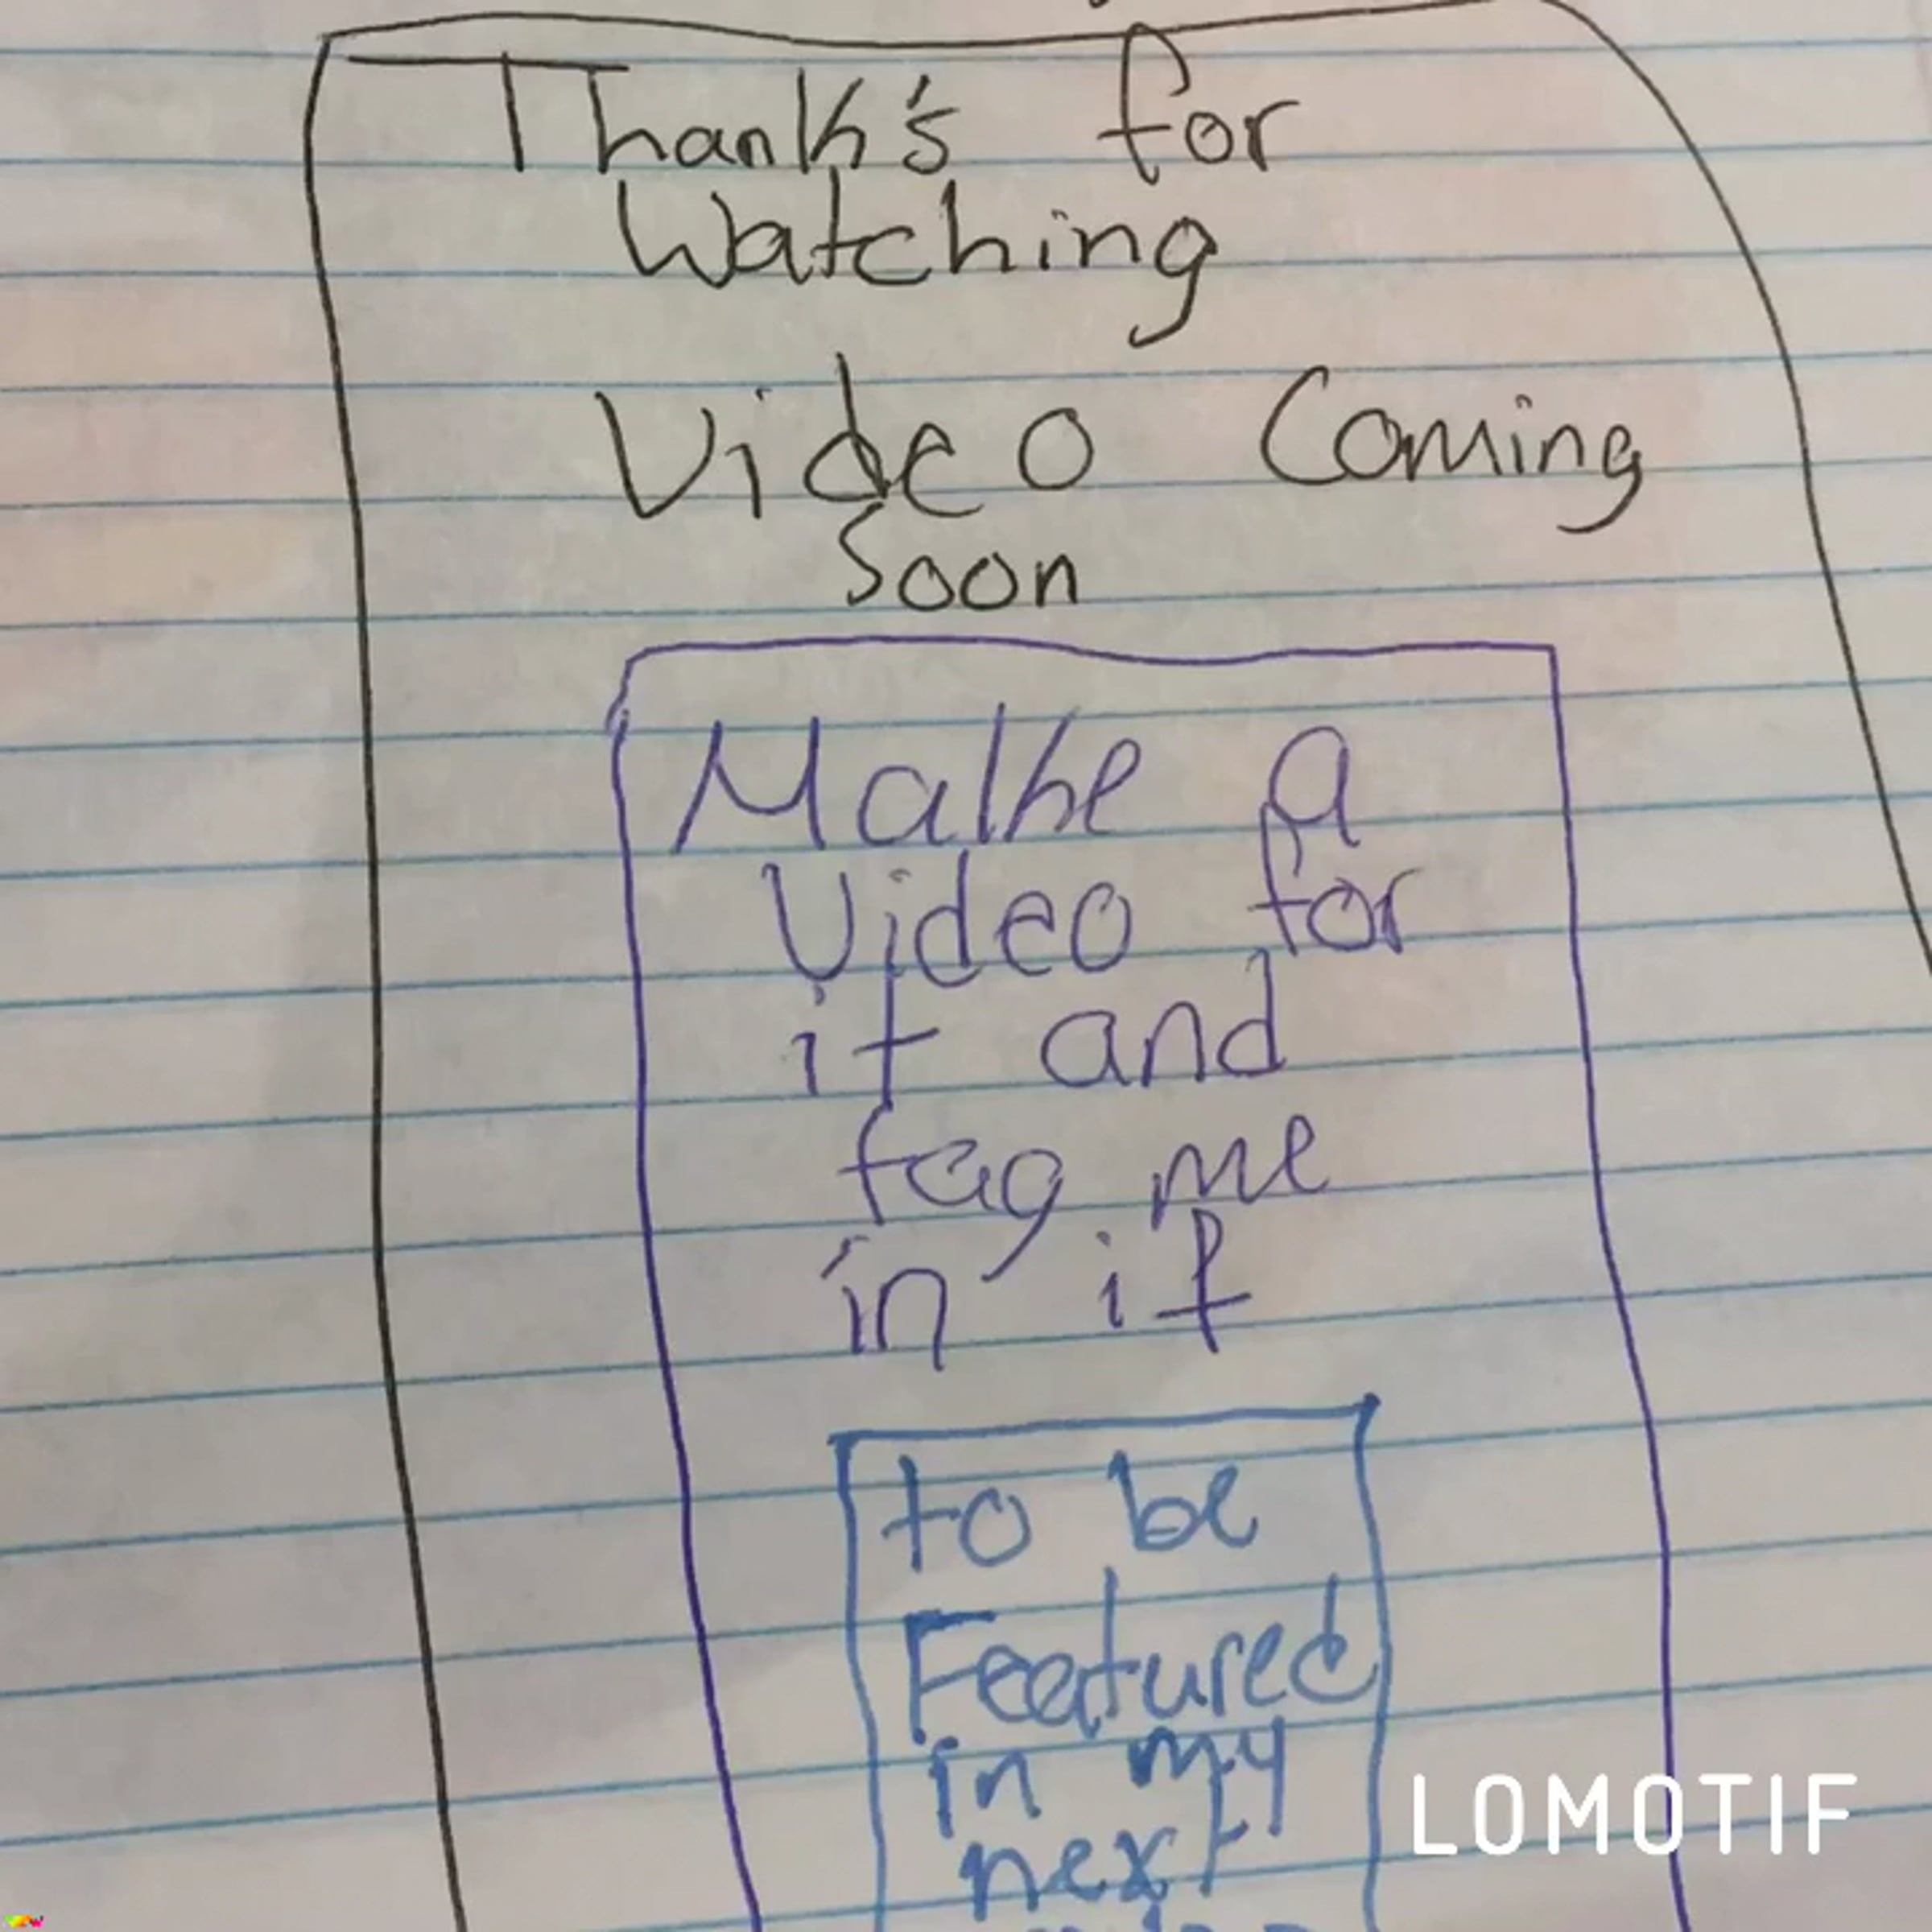 Thank's for
Watching
Video Coming
Soon
Make a
Video for
it and
tag me
in it
to be
Featured
in my
next
LOMOTIF